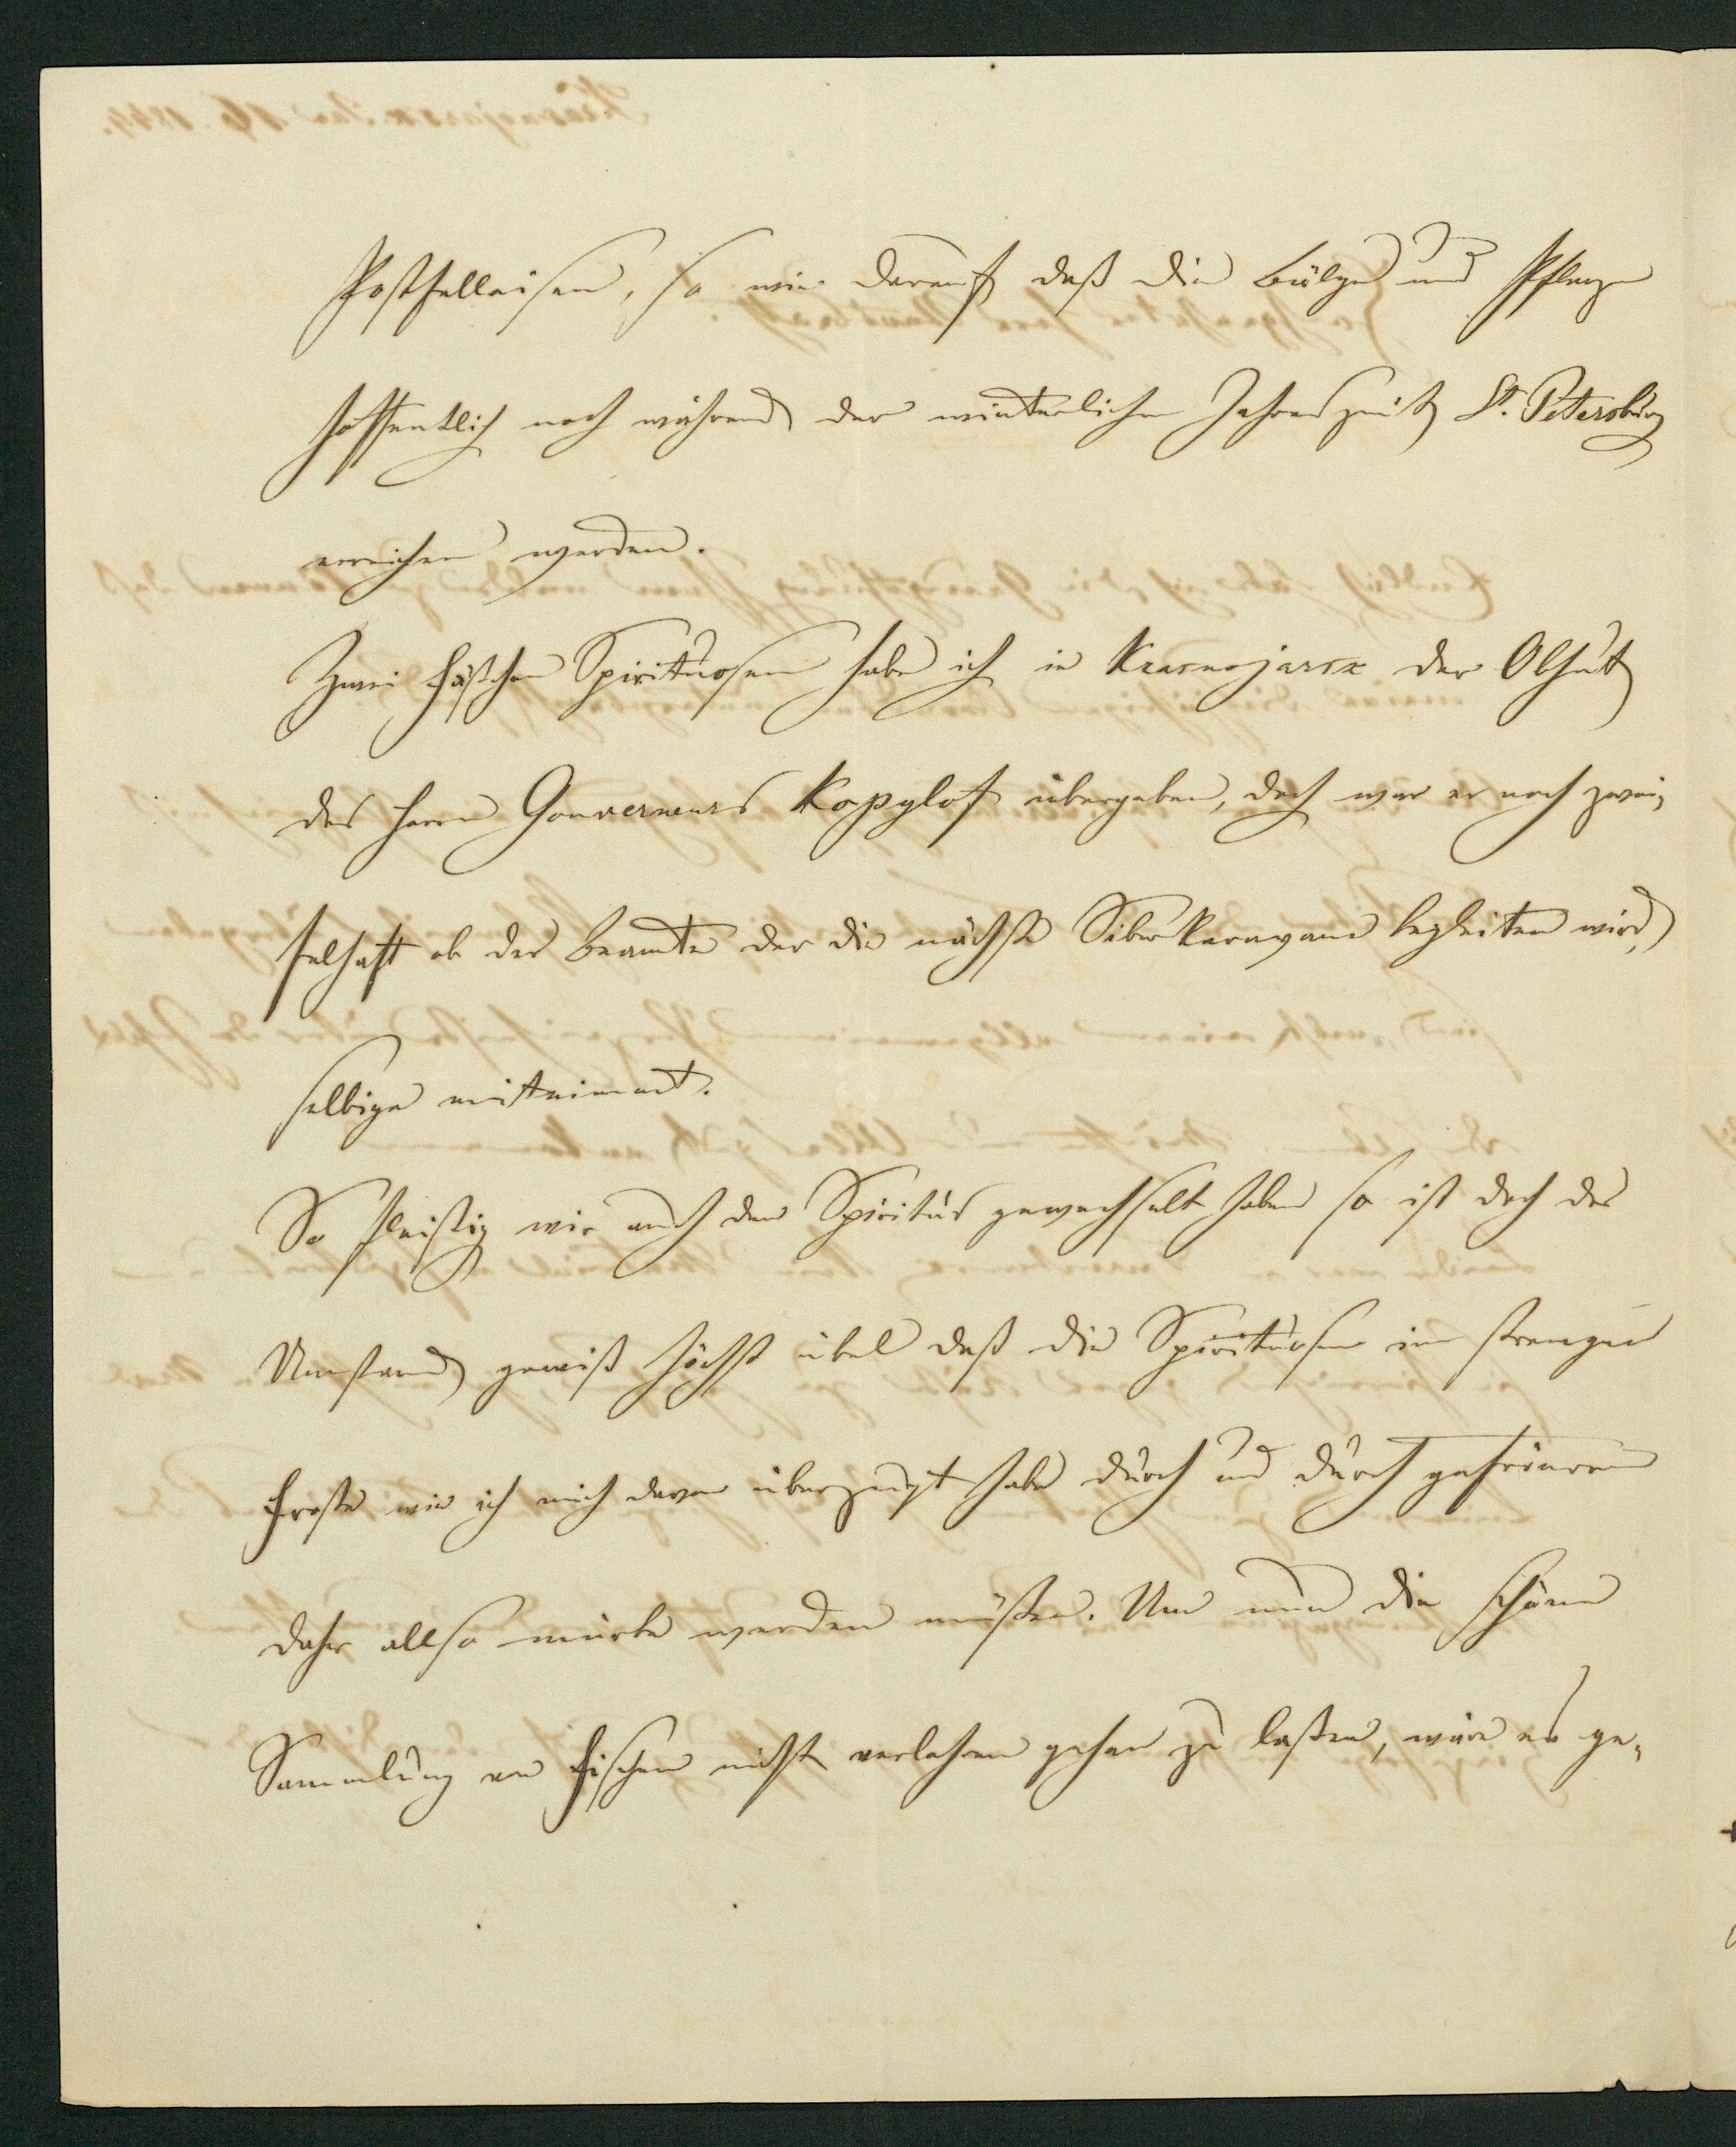 Postfelleisen, so wie darauf daß die Bälge und Pflanzen
hoffentlich noch während der winterlichen Jahreszeit St. Petersburg
erreichen werden.
Zwei Fäßchen Spirituosen habe ich in Krasnojarsk der Obhut
des Herrn Gouverneurs Kopylof übergeben, doch war er noch zwei-
felhaft ob der Beamte der die nächste Silberkaravane begleiten wird,
selbige mitnimmt.
So fleißig wir auch den Spiritus gewechselt haben so ist doch der
Umstand gewiß höchst übel daß die Spirituosen im strengen
Froste wie ich mich davon überzeugt habe durch und durch gefrieren
daher allso mürbe werden müßen. Um nun die schöne
Sammlung von Fischen nicht verlohren gehen zu laßen, wäre es ge-